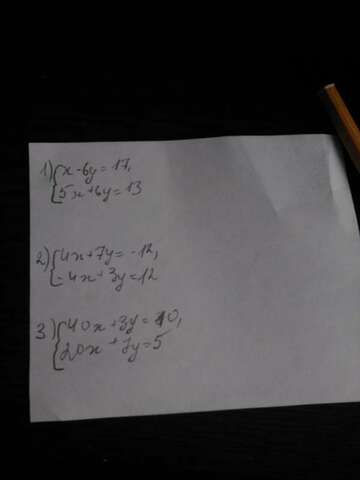 1) { x - 6y = 17,
5x + 6y = 13
2) { 4x + 7y = -12,
-4x + 3y = 12
3) { 40x + 3y = 10,
20x + 7y = 5